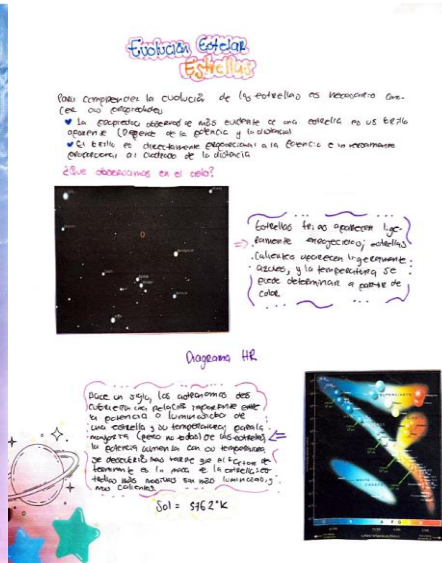 Evolución Estelar
Estrellas
Para comprender la evolución de las estrellas es necesario cono-
cer sus propiedades
La propiedad observable más evidente de una estrella es us brillo
aparente (Depende de la potencia y la distancia)
El brillo es directamente proporcional a la potencia e inversamente
proporcional al cuadrado de la distancia
¿Que observamos en el cielo?
Estrellas frias aparecen lige-
ramente enrojecidas; estrellas
calientes aparecen ligeramente
azules, y la temperatura se
puede determinar a partir de
color
Diagrama HR
Hace un siglo, los astronomos des
cubrieron una relación importante entre
la potencia o luminosidad de
una estrella y su temperatura; para la
mayoría (pero no todas) de las estrellas
la potencia aumenta con su temperatura
se descubrió mas tarde que el factor de
terminante es la masa de la estrella: es
trellas más masivas son más luminosas y
mas calientes
Sol = 5762°K